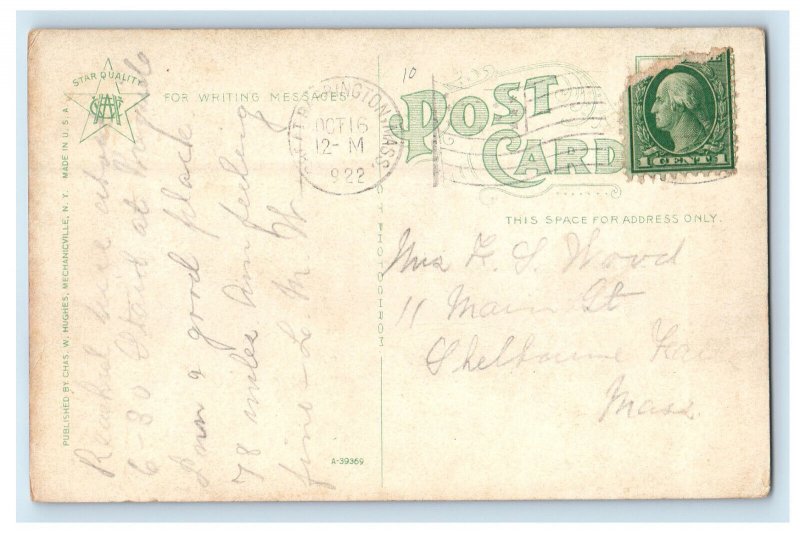 STAR QUALITY
CWH
MADE IN U.S.A.
PUBLISHED BY CHAS. W. HUGHES, MECHANICVILLE, N. Y.
FOR WRITING MESSAGES
Reached here about
6-30 at
Inn a good place
78 miles Am feeling
fine - L. M. W
A-39369
10
OCT 16
12-M
1922
MASS.
POST
CARD
1 CENT 1
THIS SPACE FOR ADDRESS ONLY.
Mrs F. S. Wood
11 Main St
Shelburne
Mass.